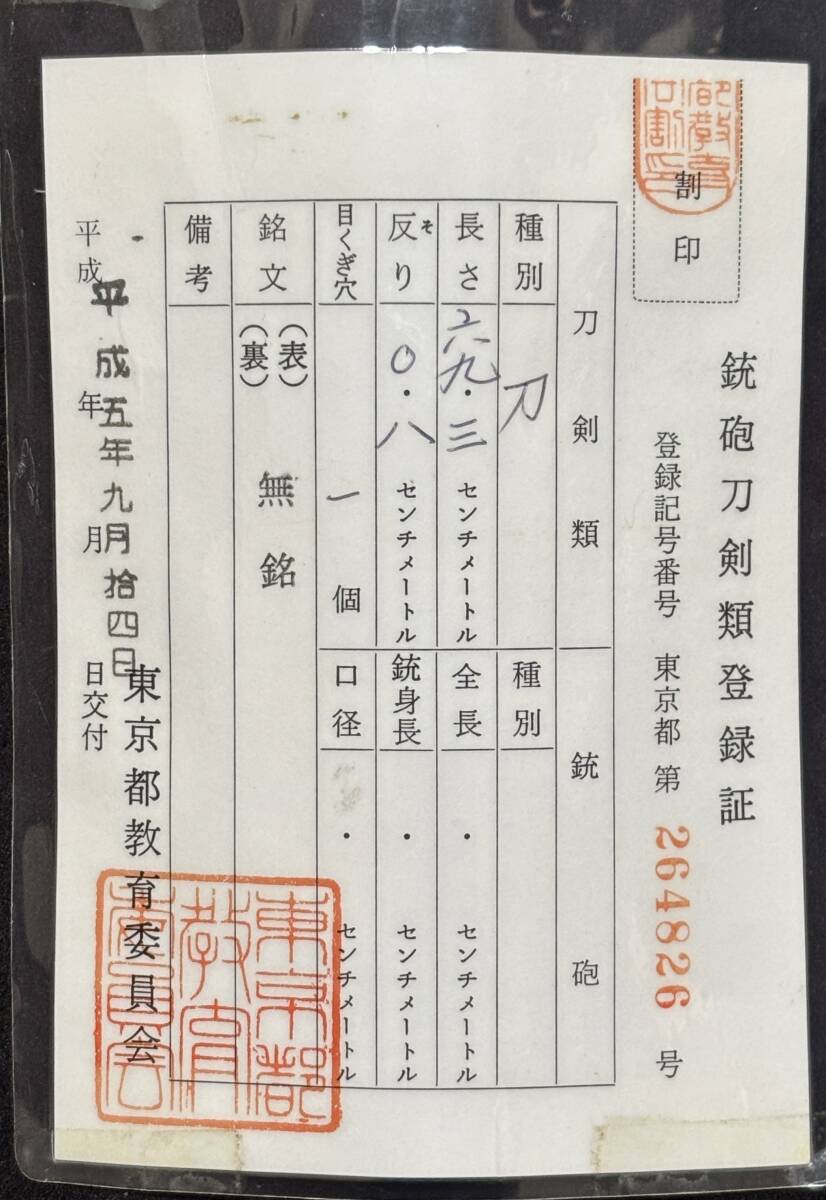 割印
銃砲刀剣類登録証
登録記号番号 東京都 第 264826 号
刀剣類
種別 刀
長さ 六九・三 センチメートル
反り そ 〇・八 センチメートル
目くぎ穴 一 個
銘文 (表) (裏) 無銘
備考
銃砲
種別
全長 ・ センチメートル
銃身長 ・ センチメートル
口径 ・ センチメートル
平成 年 月 日交付
平成五年九月拾四日
東京都教育委員会
東京都教育委員会